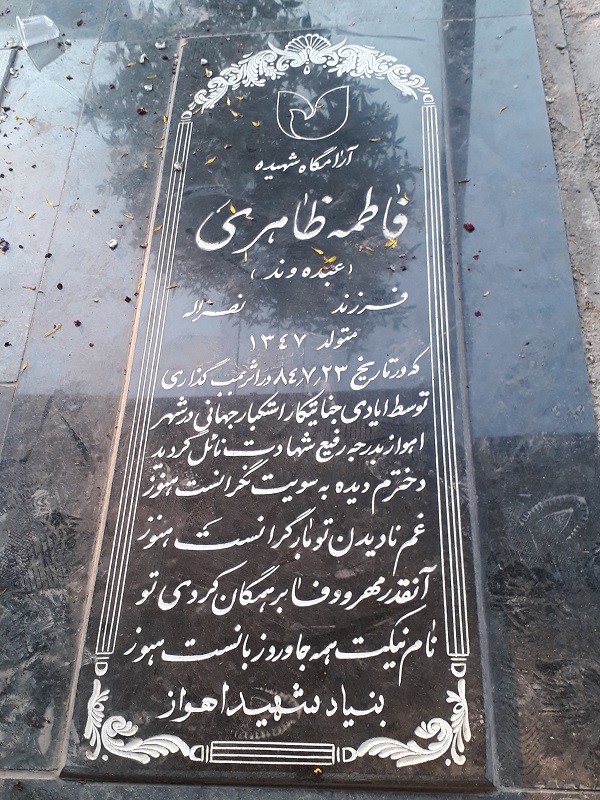 آرامگاه شهیده
فاطمه ظاهری
(عبده وند)
فرزند نصراله
متولد ۱۳۴۷
که در تاریخ ۸۴٫۷٫۲۳ در اثر بمب گذاری
توسط ایادی جنایتکار استکبار جهانی در شهر
اهواز بدرجه رفیع شهادت نائل گردید
دخترم دیده به سویت نگرانست هنوز
غم نادیدن تو بار گرانست هنوز
آنقدر مهر و وفا بر همگان کردی تو
نام نیکت همه جا ورد زبانست هنوز
بنیاد شهید اهواز